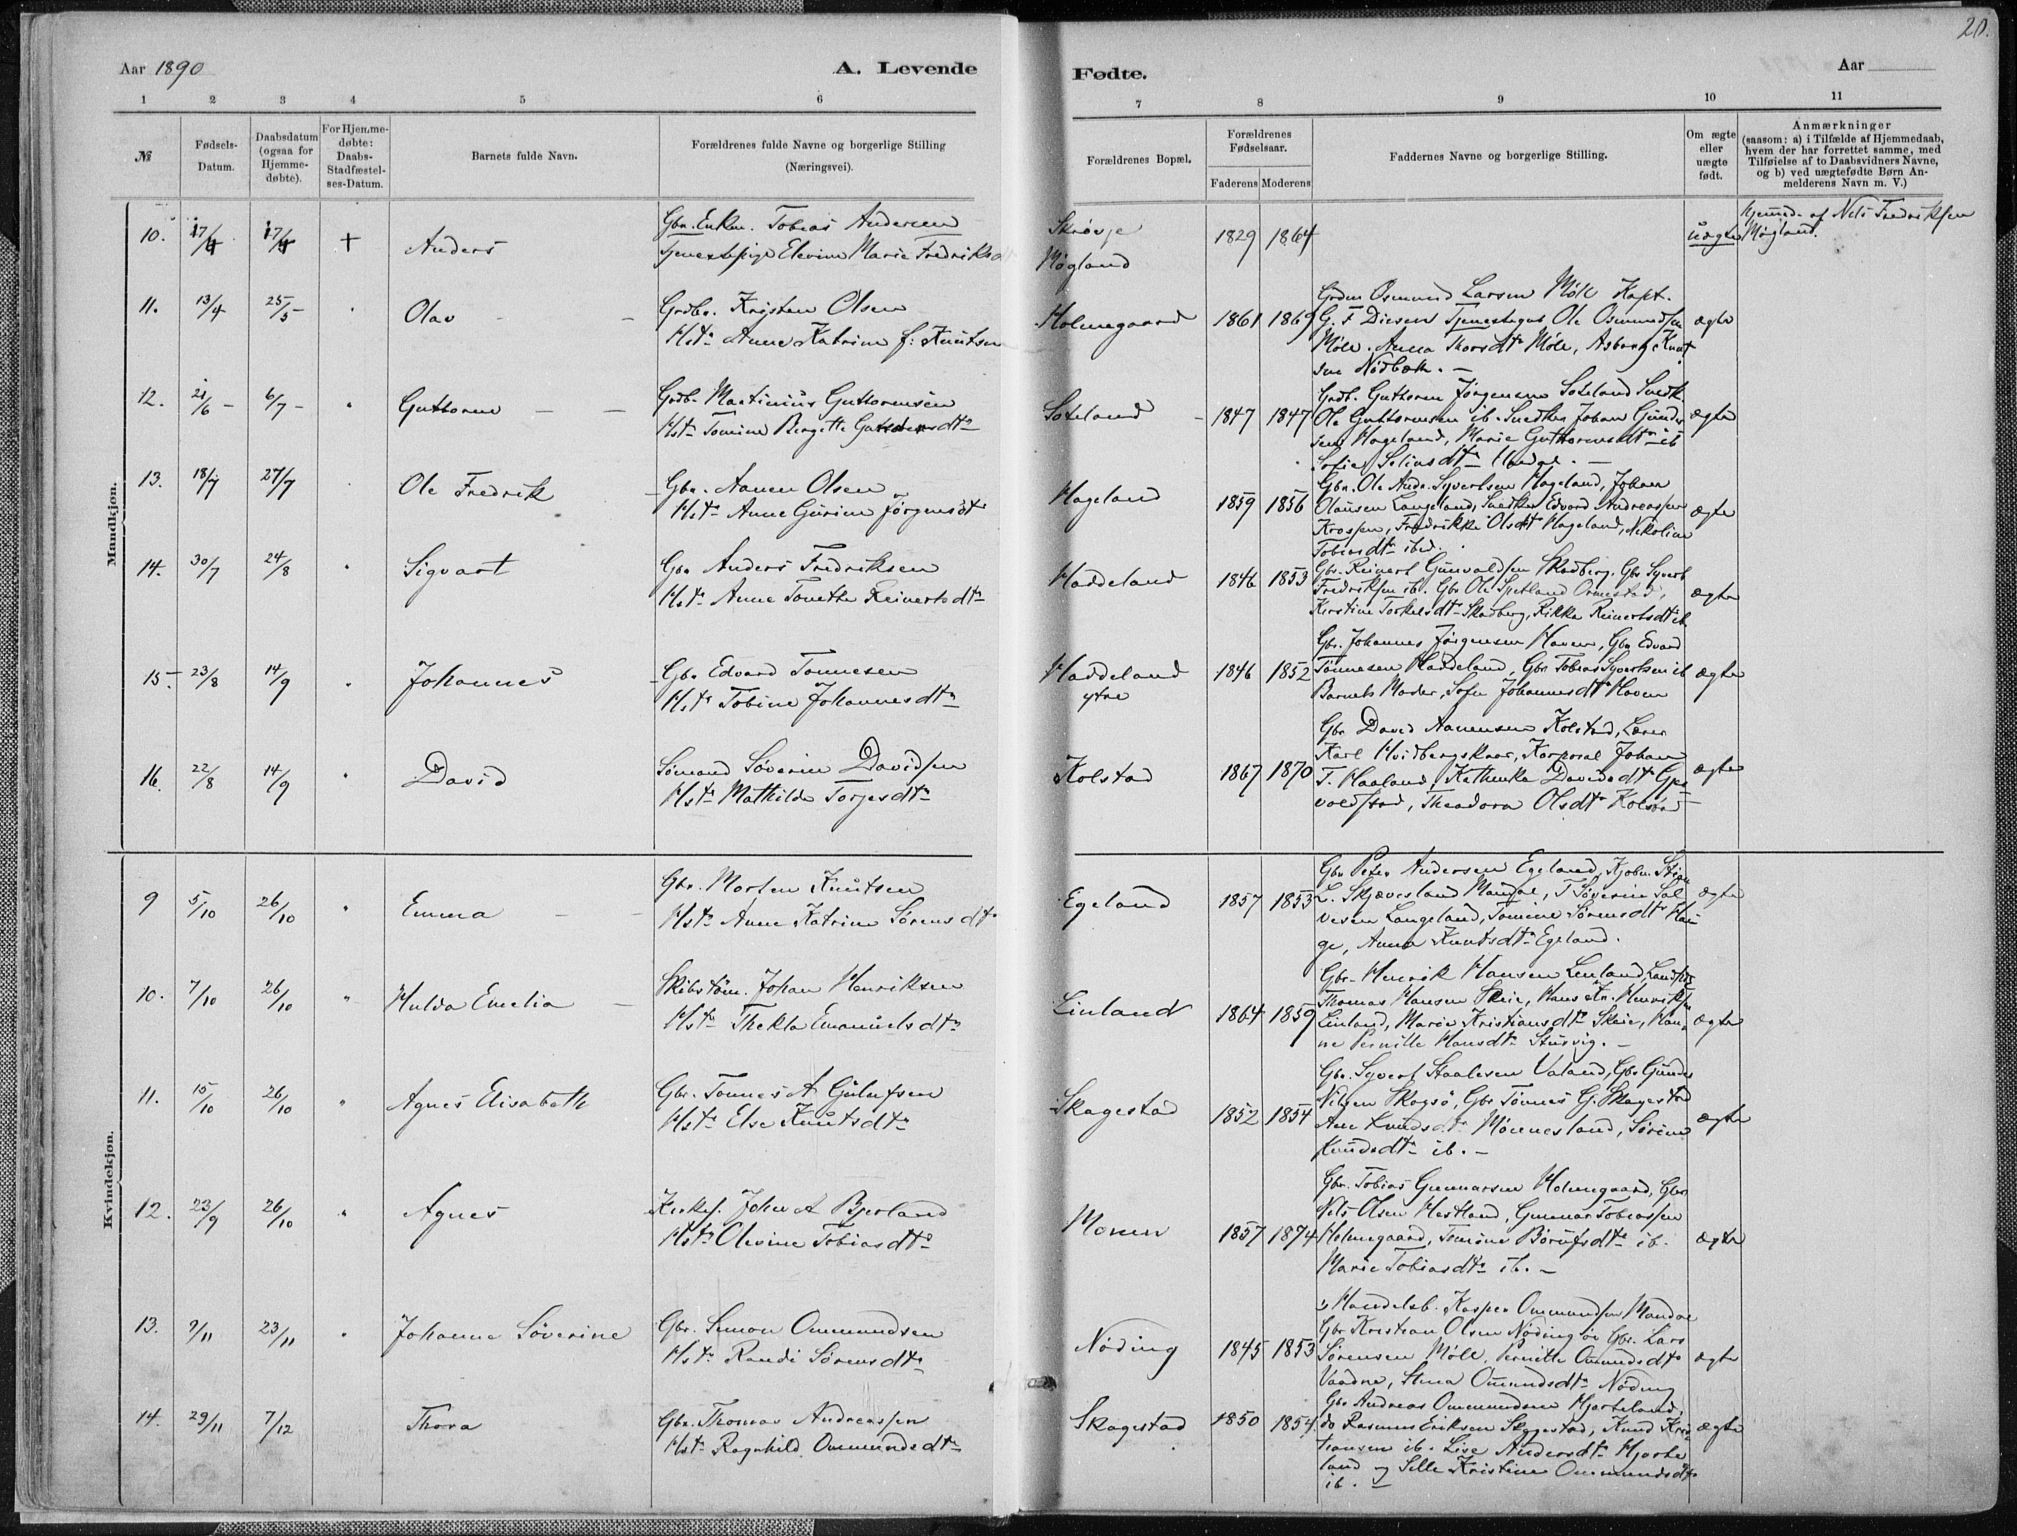 20.
Aar 1890
A. Levende
Fødte.
Aar
1 2 3 4 5 6 7 8 9 10 11
№
Fødsels-
Datum.
Daabsdatum
(ogsaa for
Hjemme-
døbte).
For Hjemme-
døbte:
Daabs-
Stadfæstel-
ses-Datum.
Barnets fulde Navn.
Forældrenes fulde Navne og borgerlige Stilling
(Næringsvei).
Forældrenes Bopæl.
Forældrenes
Fødselsaar.
Faderens Moderens
Faddernes Navne og borgerlige Stilling.
Om ægte
eller
uægte
født.
Anmærkninger
(saasom: a) i Tilfælde af Hjemmedaab,
hvem der har forrettet samme, med
Tilføielse af to Daabsvidners Navne,
og b) ved uægtefødte Børn An-
melderens Navn m. V.)
Mandkjøn.
10. 17/4 17/4 + Anders
Gbr. Enkm. Tobias Andersen
Tjenestepige Elevine Marie Fredriksd
Skrøvje
Møgland
1829 1864
uægte
hjemmed. af Nils Fredriksen
Møgland.
11. 13/4 25/5 Olav
Grdbr. Kristen Olsen
Hst. Anne Katrine f. Knutsen
Holmegaard 1861 1869
Grdm Osmund Larsen Møll Kapt.
G. F Diesen Tjenestegut Ole Osmundsen
Møll. Anna Thorsdtr Møll, Asborg Knut
sen Nødbæk. —
ægte
12. 21/6 6/7 Guttorm
Grdb. Martinius Guttormsen
Hst. Tomine Bergitte
Soteland 1847 1847
Grdb. Guttorm Jørgensen Soteland Snedk.
Ole Guttormsen ib. Snedker Johan Gunder
sen Hageland, Marie Guttormsdtr ib
Sofie Seliusdtr
ægte
13. 18/7 27/7 Ole Fredrik
Gbr. Aanen Olsen
Hst. Anne Gurine Jørgensdtr
Hageland 1859 1856
Gbr. Ole Andr. Syvertsen Hageland, Johan
Olausen Langeland, Snedker Edvard Andreassen
Krossen, Fredrikke Olsdtr Hageland, Nikoline
Tobiasdtr ibd.
ægte
14. 30/7 24/8 Sigvart
Gbr Anders Fredriksen
Hst. Anne Tonette Reinertsdtr
Haddeland 1846 1853
Gbr. Reinert Gunvaldsen Skadberg, Gbr Syvert
Fredriksen ib. Gbr Ole Sjetland Ormestad,
Kirstine Torkelsdtr Skadberg, Rikka Reinertsdtr ib
ægte
15. 23/8 14/9 Johannes
Gbr Edvard Tønnesen
Hst. Tobine Johannesdtr
Haddeland
ytre
1846 1852
Gbr. Johannes Jørgensen Haven, Gbr Edvard
Tønnesen Haddeland, Gbr Tobias Syvertsen ib
Barnets Moder, Sofie Johannesdtr Haven
ægte
16. 22/8 14/9 David
Sømand Søverin Davidsen
Hst. Mathilde Torjesdtr
Kolstad 1867 1870
Gbr David Aanensen Kolstad, Lærer
Karl Hvidbergskaar, Korporal Johan
T. Haaland, Kathinka Davidsdtr
voldstad, Theodora Olsdtr Kolstad
ægte
Kvindekjøn.
9 5/10 26/10 Emma
Gbr. Morten Knutsen
Hst. Anne Katrine Sørensdtr
Egeland 1857 1853
Gbr Peter Andersen Egeland, Kjøbm. Stian
L. Skjævesland Mandal, T Søverin Sal
vesen Langeland, Tomine Sørensdtr Hau
ge, Anna Knutsdtr Egeland.
ægte
10. 7/10 26/10 Hulda Emelia
Skibstøm. Johan Henriksen
Hst. Thekla Emanuelsdtr
Linland 1864 1859
Gbr. Henrik Hansen Linland,
Thomas Hansen Skeie, Hans Kr. Henriksen
Linland, Marie Kristiansdtr Skeie, Han
ne Pernille Hansdtr Stusvig. —
ægte
11. 15/10 26/10 Agnes Elisabeth
Gbr. Tønnes A Gulufsen
Hst. Else Knutsdtr
Skagestad 1852 1854
Gbr. Syvert Staalesen Valand, Gbr Gunder
Nilsen Skogsø, Gbr Tønnes G. Skagestad
Ane Knudsdtr Mønnesland, Sørine
Knudsdtr ib. —
ægte
12. 23/9 26/10 Agnes
Kirkes. Johan A Bjerland
Hst. Olevine Tobiasdtr
Monen 1857 1874
Gbr. Tobias Gunnarsen Holmegaard, Gbr
Nils Olsen Hestland, Gunnar Tobiassen
Holmegaard, Tomine Børufsdtr ib.
Marie Tobiasdtr ib. —
ægte
13. 9/11 23/11 Johanne Søverine
Gbr. Simon Ommundsen
Hst. Randi Sørensdtr
Nøding 1845 1853
Handelsb. Kasper Ommundsen Mandal
Gbr Kristian Olsen Nøding og Gbr. Lars
Sørensen Møll, Pernille Omundsdtr
Vaadne, Stina Omundsdtr Nøding
ægte
14. 29/11 7/12 Thora
Gbr. Thomas Andreassen
Hst. Ragnhild Ommundsdtr
Skagestad 1850 1854
Gbr Andreas Ommundsen Hjorteland,
do Rasmus Eriksen Skagestad, Knud Kris
tiansen ib. Lise Andersdtr Hjorte
land og Sille Kristine Ommundsdtr
ib. —
ægte